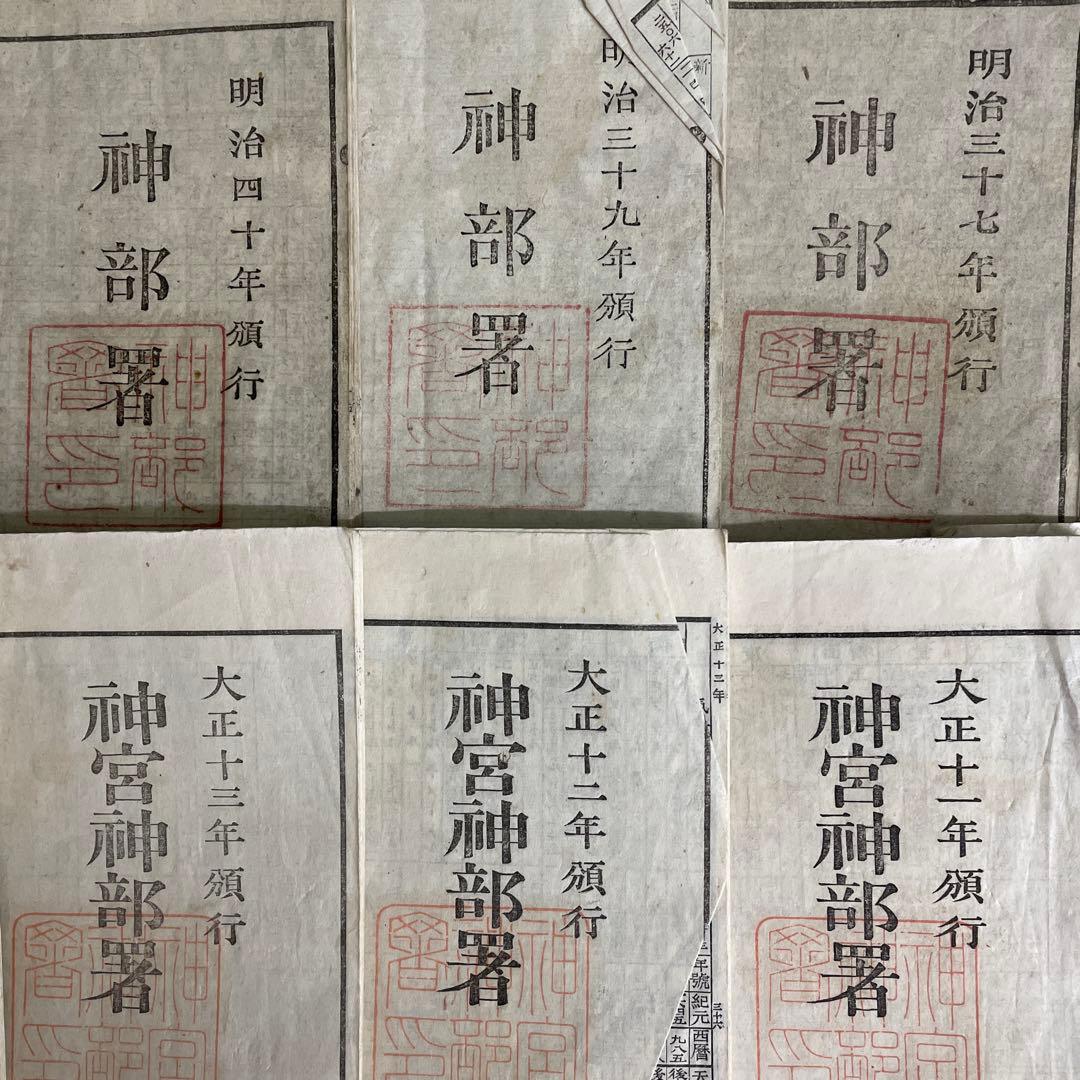 明治三十七年頒行
神部署
神部署印
明治三十九年頒行
神部署
神部署印
明治四十年頒行
神部署
神部署印
大正十一年頒行
神宮神部署
大正十二年頒行
神宮神部署
大正十二年
年號
紀元
西暦
大正十三年頒行
神宮神部署